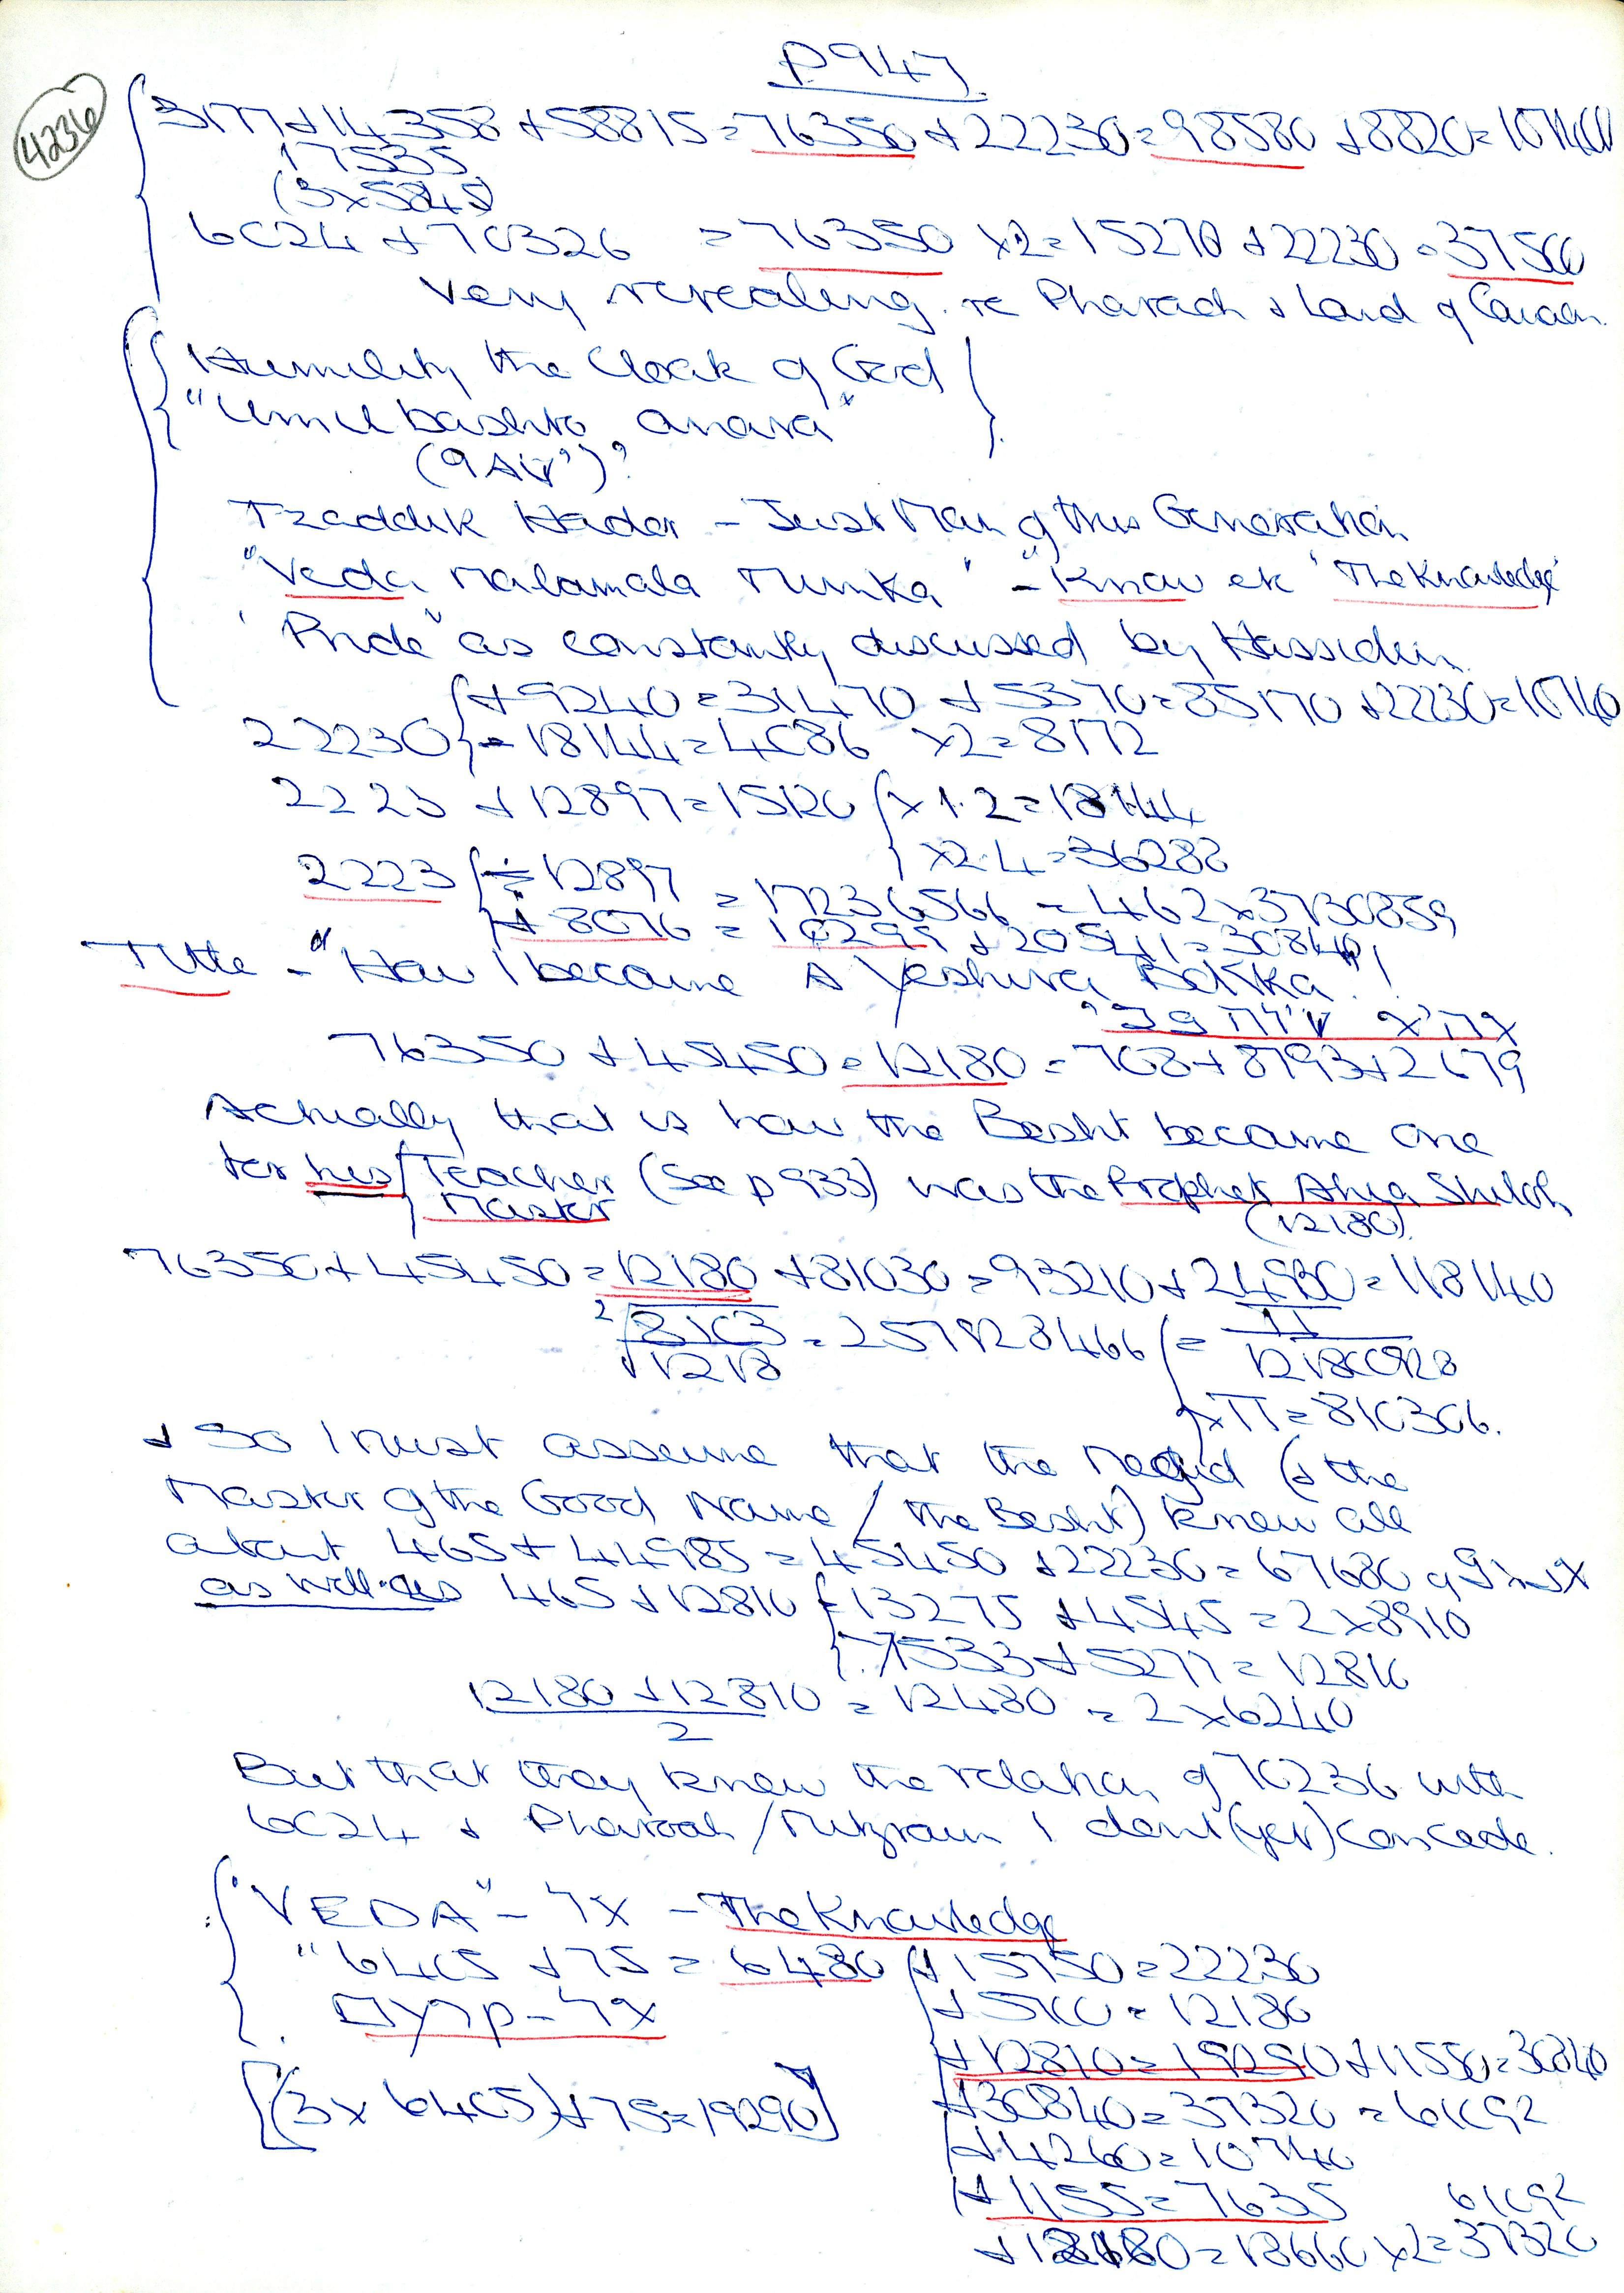 P947
4236
3177+14358+58815=76350+22230=98580+8820=107400
17535
(3x5845)
6024+70326 =76350 x2=15270+22230=37500
Very revealing re Pharaoh & Land of Canaan
Humility the Cloak of God
(9AV')?
Tzaddik Hador - Just Man of this Generation
"Veda Malamala Mimka" - "Know etc 'The Knowledge'
'Pride" as constantly discussed by Hassidim.
22230 +9240=31470+5370=85170+22230=10740
-18144=4086 x2=8172
2223+12897=15120 x1.2=18144
x2.4=36288
2223 ÷12897 =17236566=462x3730859
+8076=10299+20541=30840
Title - "How I became A Yeshiva Bokka"!
76350+45450=12180=708+8793+2679
Actually that is how the Besht became one
for his Teacher (See p933) was the Prophet Ahia Shiloh
Master (12180)
76350+45450=12180+81030=93210+24930=118140
2√8103/1218=257928466 =π/12180928
xπ=810306.
& So I must assume that the Magid (& the
Master of the Good Name / the Besht) knew all
about 465+44985=45450+22230=67680 of
as well as 465+12810=13275+4545=2x8910
7533+5277=12810
12180+12810=12480=2x6240
2
But that they knew the relation of 70236 with
6024 & Pharoah/Mitzraim I dont (yet) concede.
"VEDA" - - The Knowledge
"6405+75=6480 +15750=22230
+5700=12180
+12810=19290+11550=30840
[(3x6405)+75=19290]
+30840=37320=61092
+4260=10740
+1155=7635 61092
+12180=18660x2=37320